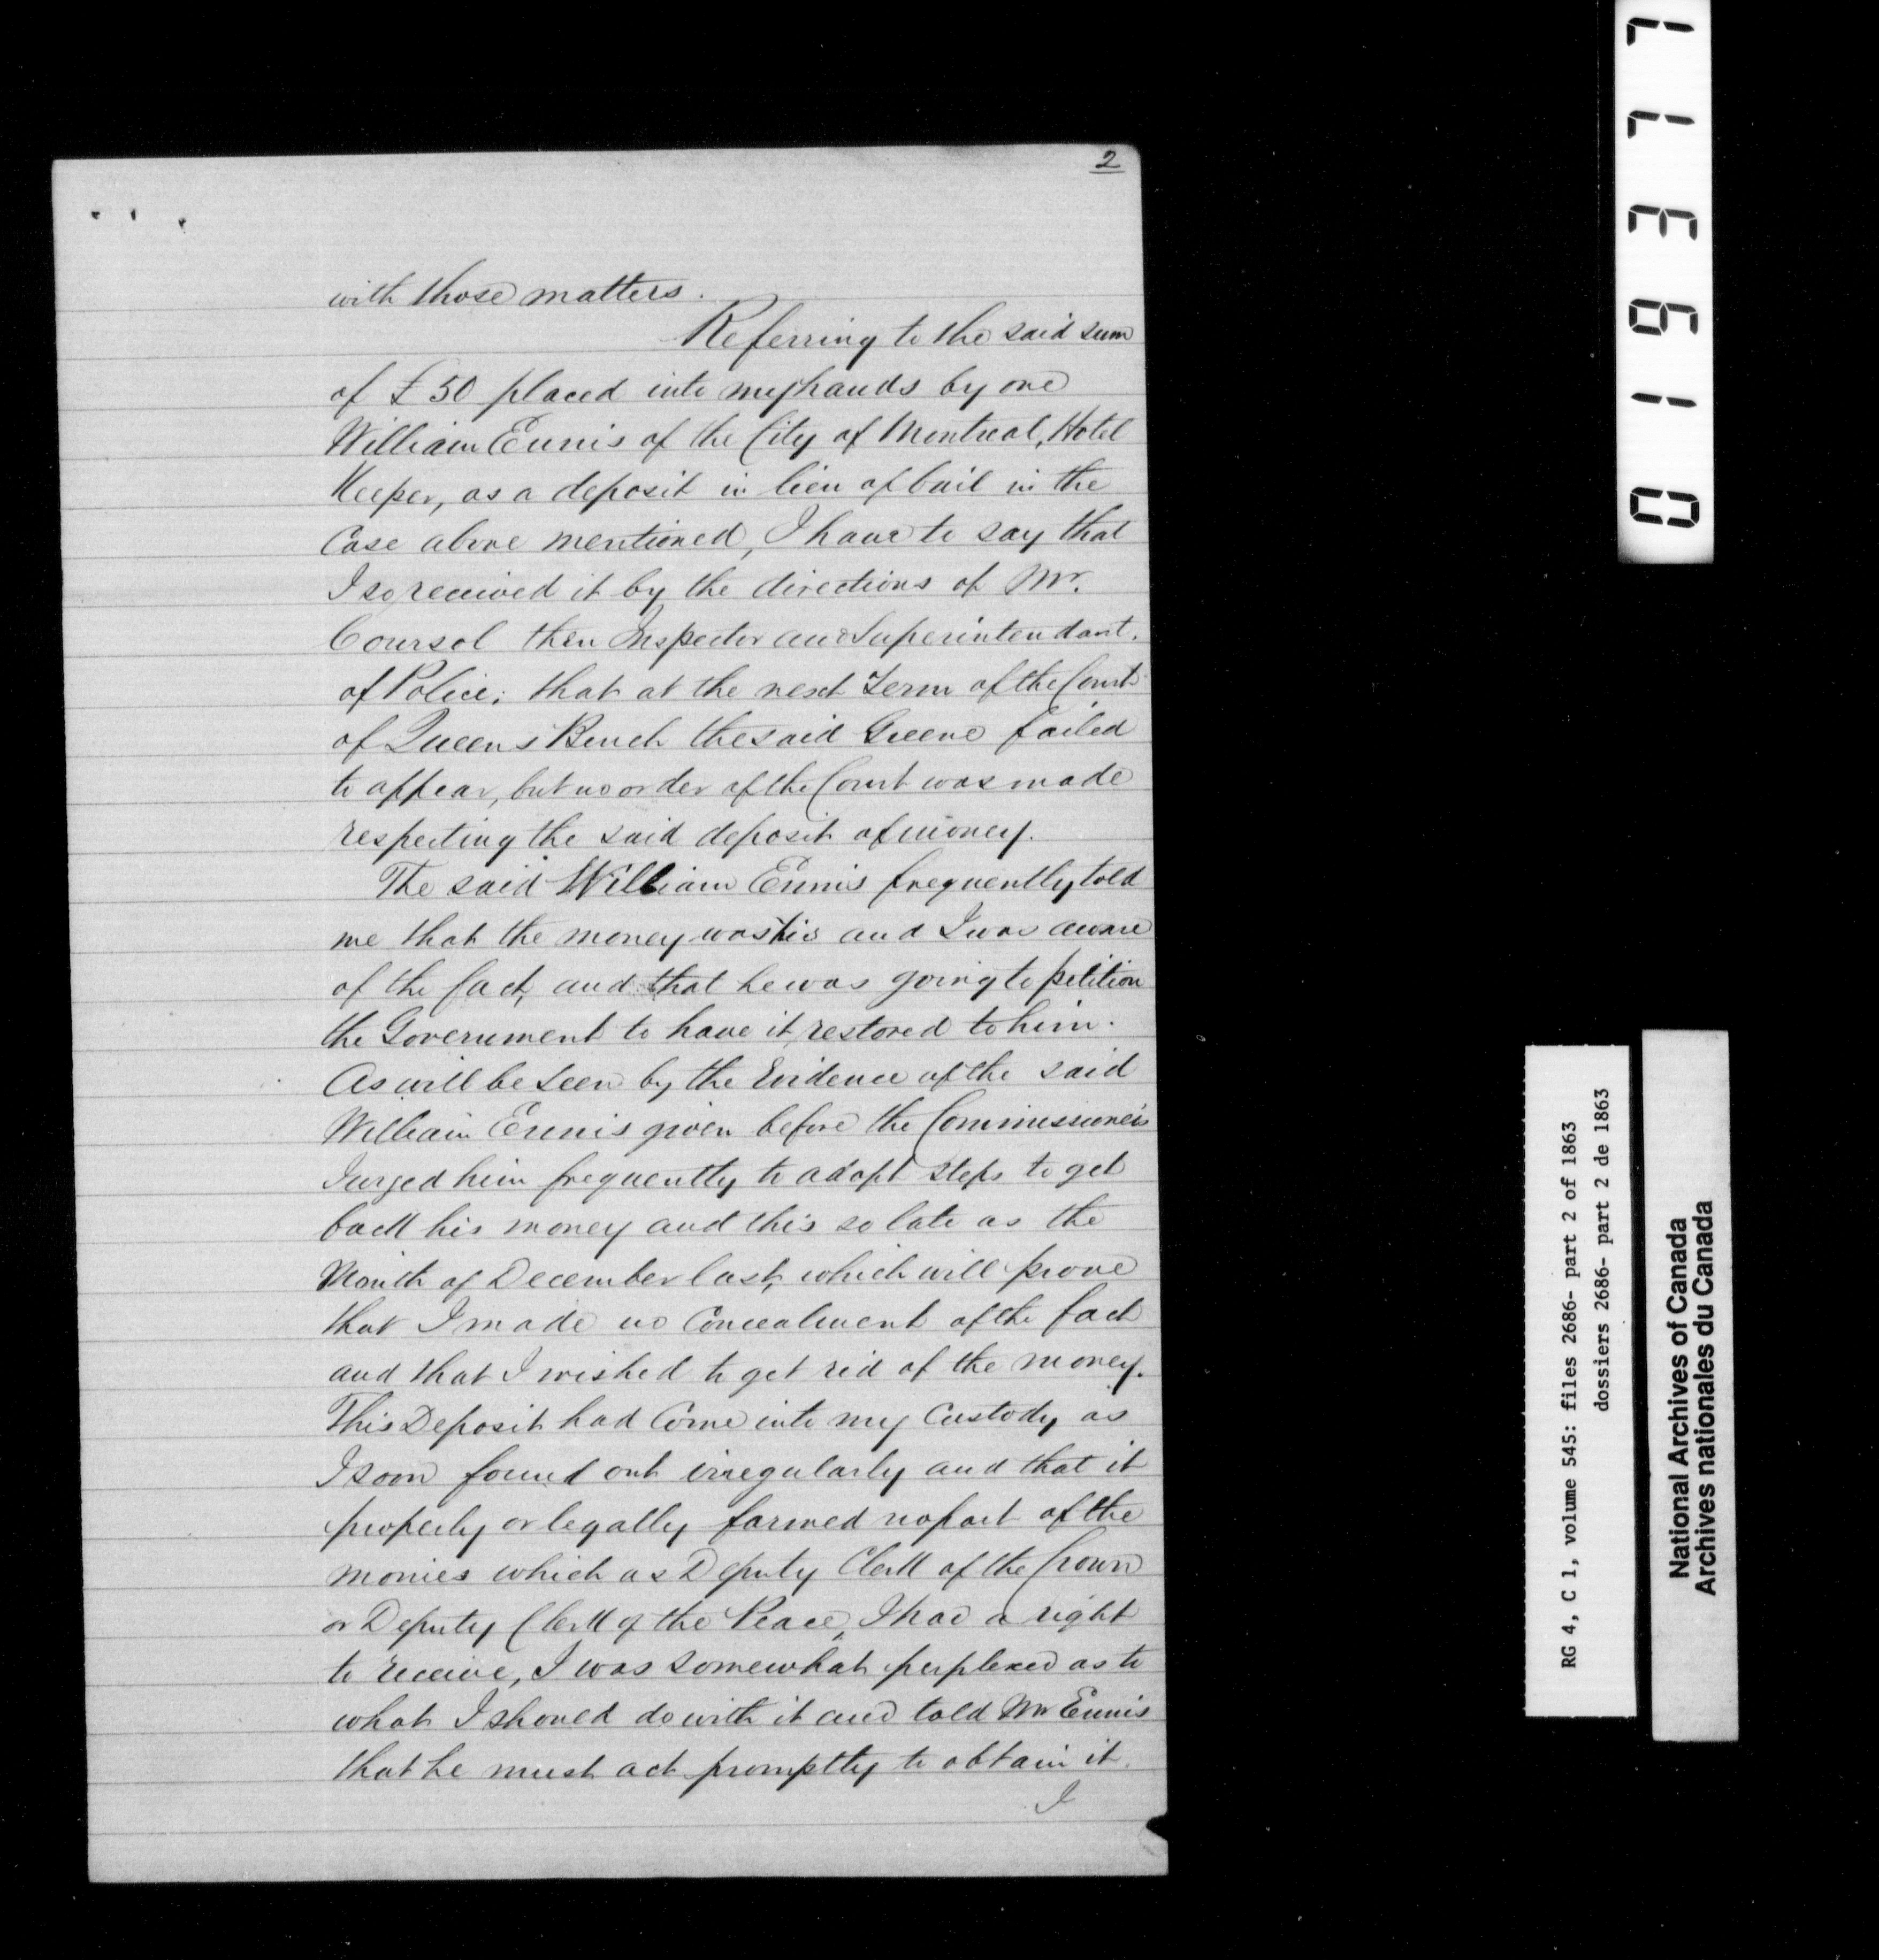 2
with those matters.
Referring to the said sum
of £50 placed into my hands by one
William Ennis of the City of Montreal, Hotel
Keeper, as a deposit in lieu of bail in the
Case above mentioned, I have to say that
I so received it by the directions of Mr.
Coursol then Inspector and Superintendant.
of Police; that at the next Term of the Court
of Queens Bench the said Greene failed
to appear, but no order of the Court was made
respecting the said deposit of money.
The said William Ennis frequently told
me that the money was his and I was aware
of the fact, and that he was going to petition
the Government to have it restored to him.
As will be seen by the Evidence of the said
William Ennis given before the Commissioners
I urged him frequently to adopt steps to get
back his money and this so late as the
Month of December last, which will prove
that I made no Concealment of the fact
and that I wished to get rid of the money.
This Deposit had Come into my Custody as
I soon found out irregularly and that it
properly or legally formed no part of the
monies which as Deputy Clerk of the Crown
or Deputy Clerk of the Peace, I had a right
to receive, I was somewhat perplexed as to
what I should do with it and told Mr Ennis
that he must act promptly to obtain it.
I
019377
RG 4, C 1, volume 545: files 2686- part 2 of 1863
dossiers 2686- part 2 de 1863
National Archives of Canada
Archives nationales du Canada